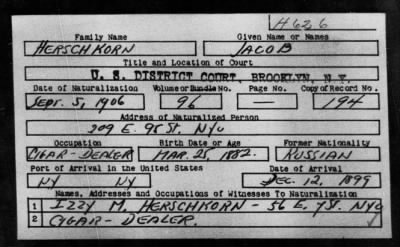 H626
Family Name Given Name or Names
HERSCHKORN JACOB
Title and Location of Court
U. S. DISTRICT COURT, BROOKLYN, N.Y.
Date of Naturalization Volume or Bundle No. Page No. Copy of Record No.
SEPT. 5, 1906 96 — 194
Address of Naturalized Person
209 E. 95 ST. NYC
Occupation Birth Date or Age Former Nationality
CIGAR-DEALER MAR. 25, 1882. RUSSIAN
Port of Arrival in the United States Date of Arrival
NY NY DEC. 12, 1899
Names, Addresses and Occupations of Witnesses To Naturalization
1 IZZY M. HERSCHKORN - 56 E. 7 ST. NYC
2 CIGAR-DEALER.